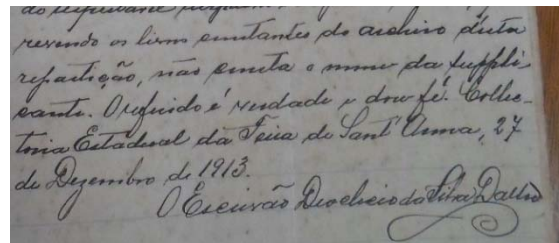 do requerente
revendo os livros constantes do archivo d'esta
repartição, não consta o nome da suppli-
cante. O referido é verdade e dou fé. Colle-
toria Estadoal da Feira de Sant'Anna, 27
de Dezembro de 1913.
O Escrivão da Silva Daltro